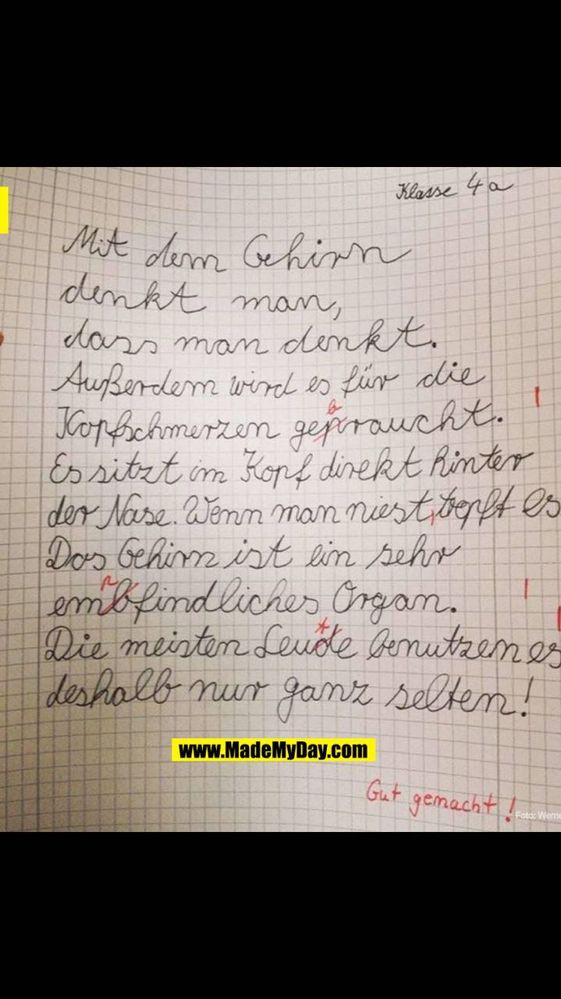 Klasse 4a
Mit dem Gehirn
denkt man,
dass man denkt.
Außerdem wird es für die
b
Kopfschmerzen gepraucht.
Es sitzt im Kopf direkt hinter
der Nase. Wenn man niest, tropft es
Das Gehirn ist ein sehr
embfindliches Organ.
t
Die meisten Leude benutzen es
deshalb nur ganz selten!
www.MadeMyDay.com
Gut gemacht!
Foto: Werne